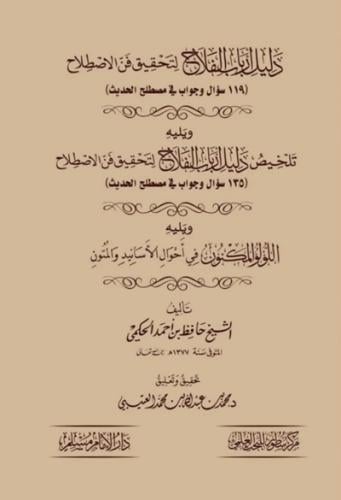 دليل أرباب الفلاح لتحقيق فن الاصطلاح
(١١٩ سؤال وجواب في مصطلح الحديث)
ويليه
تلخيص دليل أرباب الفلاح لتحقيق فن الاصطلاح
(١٣٥ سؤال وجواب في مصطلح الحديث)
ويليه
اللؤلؤ المكنون في أحوال الأسانيد والمتون
تأليف
الشيخ حافظ بن أحمد الحكمي
المتوفى سنة ١٣٧٧هـ
تحقيق وتعليق
د. محمد بن عبدالله بن محمد العتيبي
دار الإمام مسلم